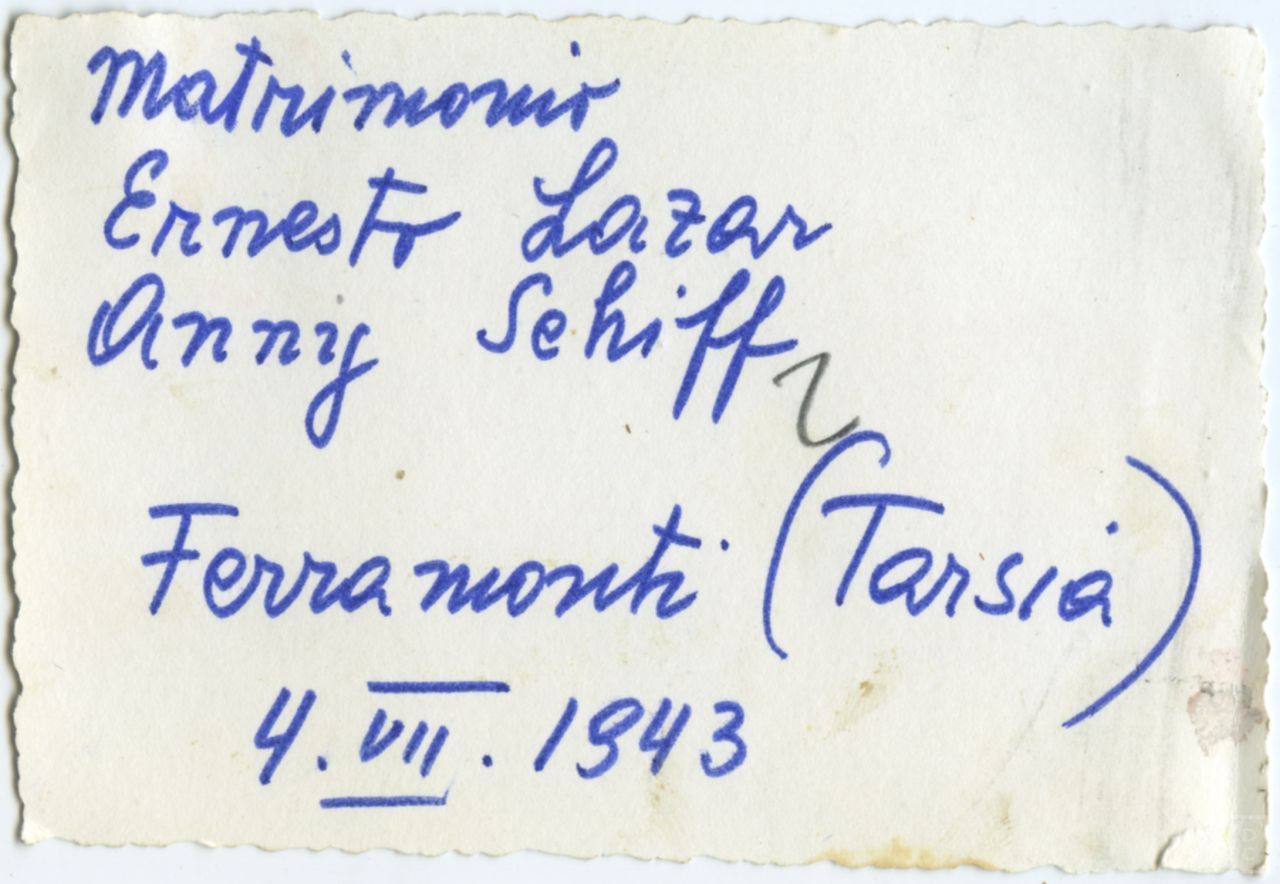 Matrimonio
Ernesto Lazar
Anny Schiff
Ferramonti (Tarsia)
4.VII.1943